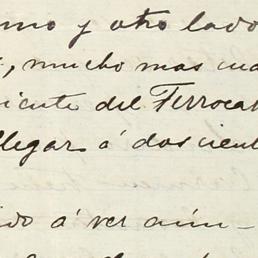 mo y otro lado
, mucho mas
del Ferrocar
llegar á dos cient
á ver aún-